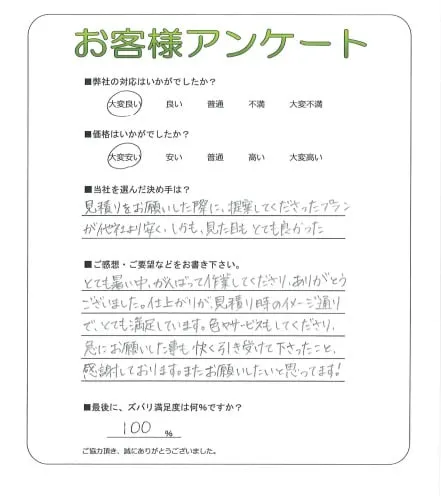 お客様アンケート
■弊社の対応はいかがでしたか?
大変良い 良い 普通 不満 大変不満
■価格はいかがでしたか?
大変安い 安い 普通 高い 大変高い
■当社を選んだ決め手は?
見積りをお願いした際に、提案してくださったプラン
が他社より安く、しかも、見た目もとても良かった
■ご感想・ご要望などをお書き下さい。
とても暑い中、がんばって作業してくださり、ありがとう
ございました。仕上がりが、見積り時のイメージ通り
で、とても満足しています。色々サービスもしてくださり、
急にお願いした事も快く引き受けて下さったこと、
感謝しております。またお願いしたいと思ってます!
■最後に、ズバリ満足度は何%ですか?
100 %
ご協力頂き、誠にありがとうございました。